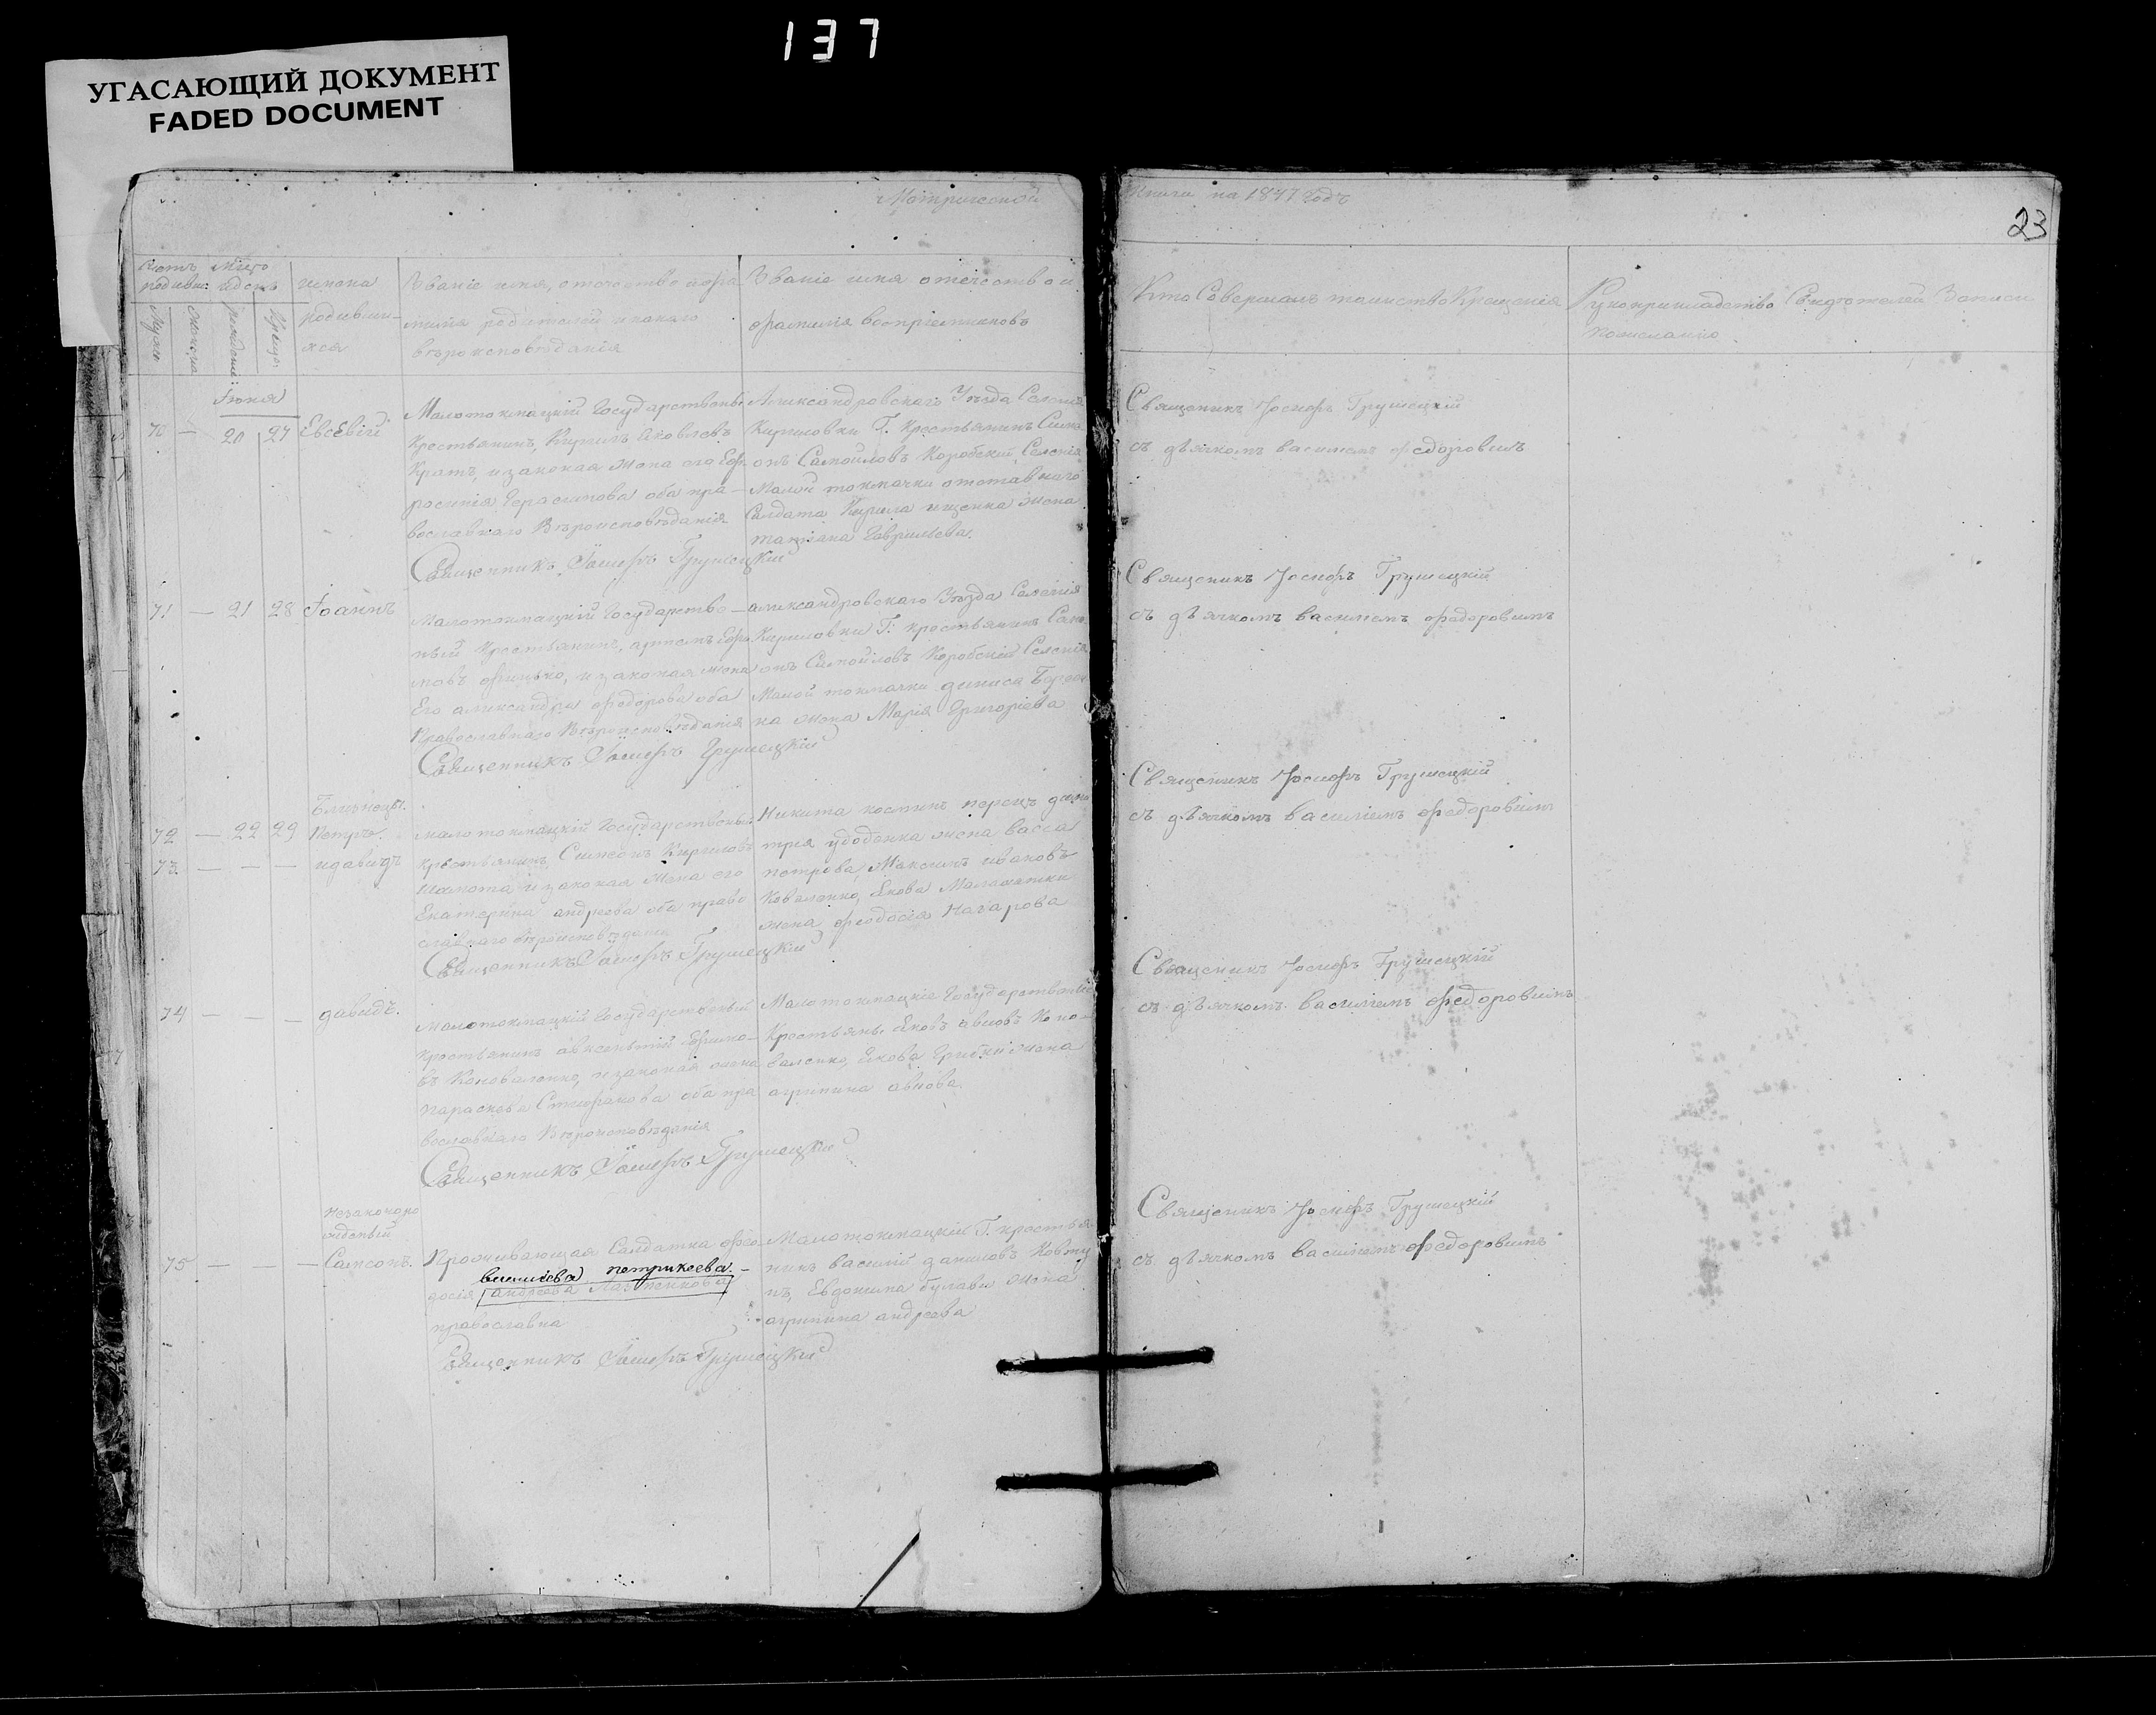 137
УГАСАЮЩИЙ ДОКУМЕНТ
FADED DOCUMENT
Метрической
Книги на 18 7 годъ
23
имена
родивши-
хся
Званіе имя, отечество и фа
милія родителей и какаго
вѣроисповѣданія
Званіе имя отечество и
фамилія воспріемниковъ
Кто Совершалъ таинство Крещенія
Рукоприкладство Свидѣтелей Записи
по желанію
Іюня
70 — 20 27 Евсевій
Малотокмацкій Государственый
Крестьянинъ, Кирилъ Яковлевъ
Кратъ, и законая жена его Еф-
росинія Герасимова оба пра-
вославнаго Вѣроисповѣданія
Священникъ Іосифъ Грушецкій
Александровскаго Уѣзда Селенія
Кириловки Г. Крестьянинъ Сим-
онъ Самойловъ Коробский, Селенія
Малой токмачки отставнаго
Салдата Кирила ищенка жена
татіана Гаврильева.
Священикъ Іосифъ Грушецкій
съ дьячкомъ василіемъ федоровимъ
71 — 21 28 Іоаннъ
Малотокмацкій Государстве-
ный Крестьянинъ, артемъ Ефи
мовъ финько, и законая жена
Его александра федорова оба
Православнаго Вѣроисповѣданія
Священникъ Іосифъ Грушецкій
александровскаго Уѣзда Селенія
Кириловки Г. крестьянинъ Сим
онъ Самойловъ Коробскій Селенія
Малой токмачки дениса
на жена Марія Григоріева
Священикъ Іосифъ Грушецкій
съ дьячкомъ василіемъ федоровимъ
Близнецы.
72 — 22 29 Петръ.
73. — — — идавидъ
малотокмацкій Государственый
крестьянинъ, Симеонъ Кириловъ
и законая жена его
Екатерина андреева оба право
славнаго вѣроисповѣданія
Священникъ Іосифъ Грушецкій
Никита костинъ перецъ дими
трія удоденка жена васса
петрова, Максимъ ивановъ
Коваленко, Якова
жена феодосія Назарова
Священикъ Іосифъ Грушецкій
съ дьячкомъ василіемъ федоровимъ
74 — — — давидъ.
малотокмацкій Государственый
крестьянинъ авксентій Ефимо-
въ Коноваленко, и законая жена
параскева Стефанова оба пра
вославнаго Вѣроисповѣданія
Священникъ Іосифъ Грушецкій
Малотокмацкіе Государственые
Крестьяны Яковъ Коно-
валенко, Якова жена
агрипина
Священикъ Іосифъ Грушецкій
съ дьячкомъ василіемъ федоровимъ
Незаконоро
жденый
75 — — — Самсонъ.
Проживающая Салдатка фео-
василіева петрикеева.
досія андреева
православна
Священникъ Іосифъ Грушецкій
Малотокмацкій Г. крестья
нинъ василий даниловъ Ковту
нъ, Евдокима булави жена
агрипина андреева
Священикъ Іосифъ Грушецкій
съ дьячкомъ василіемъ федоровимъ